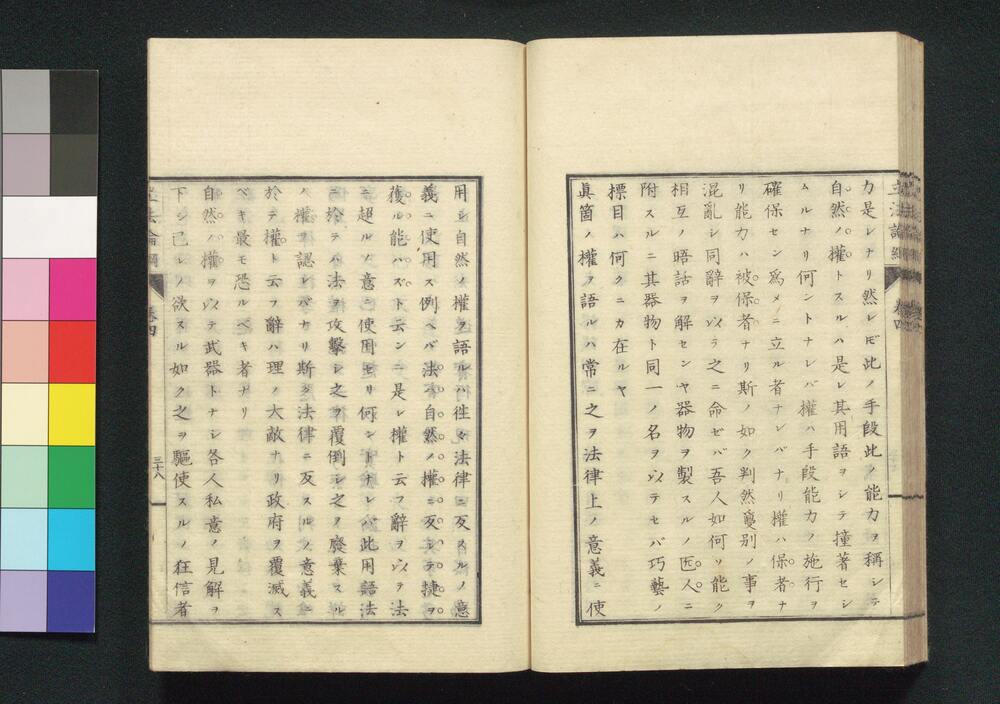 立法論綱 卷四
力是レナリ然レ𪜈此ノ手段此ノ能力ヲ稱シテ
自然ノ權トスルハ是レ其用語ヲシテ撞著セシ
ムルナリ何ントナレバ權ハ手段能力ノ施行ヲ
確保セン爲メニ立ル者ナレバナリ權ハ保者ナ
リ能力ハ被保者ナリ斯ノ如ク判然敻別ノ事ヲ
混亂シ同辭ヲ以テ之ニ命ゼバ吾人如何ソ能ク
相互ノ晤話ヲ解センヤ器物ヲ製スルノ匠人ニ
附スルニ其器物ト同一ノ名ヲ以テセバ巧藝ノ
標目ハ何クニカ在ルヤ
眞箇ノ權ヲ語ルハ常ニ之ヲ法律上ノ意義ニ使
用シ自然ノ權ヲ語ルハ往々法律ニ反スルノ意
義ニ使用ス例ヘバ法ハ自然ノ權ニ反シテ捷ヲ
獲ル能ハズト云ンニ是レ權ト云フ辭ヲ以テ法
ニ超ルノ意ニ使用セリ何ントナレバ此用語法
ニ於テハ法ヲ攻擊シ之ヲ覆倒シ之ヲ廢棄スル
ノ權ヲ認レバナリ斯ク法律ニ反スルノ意義ニ
於テ權ト云フ辭ハ理ノ大敵ナリ政府ヲ覆滅ス
ベキ最モ恐ルベキ者ナリ
自然ノ權ヲ以テ武器トナシ各人私意ノ見解ヲ
下シ己レノ欲スル如ク之ヲ驅使スルノ狂信者
立法論綱 卷四 三十八